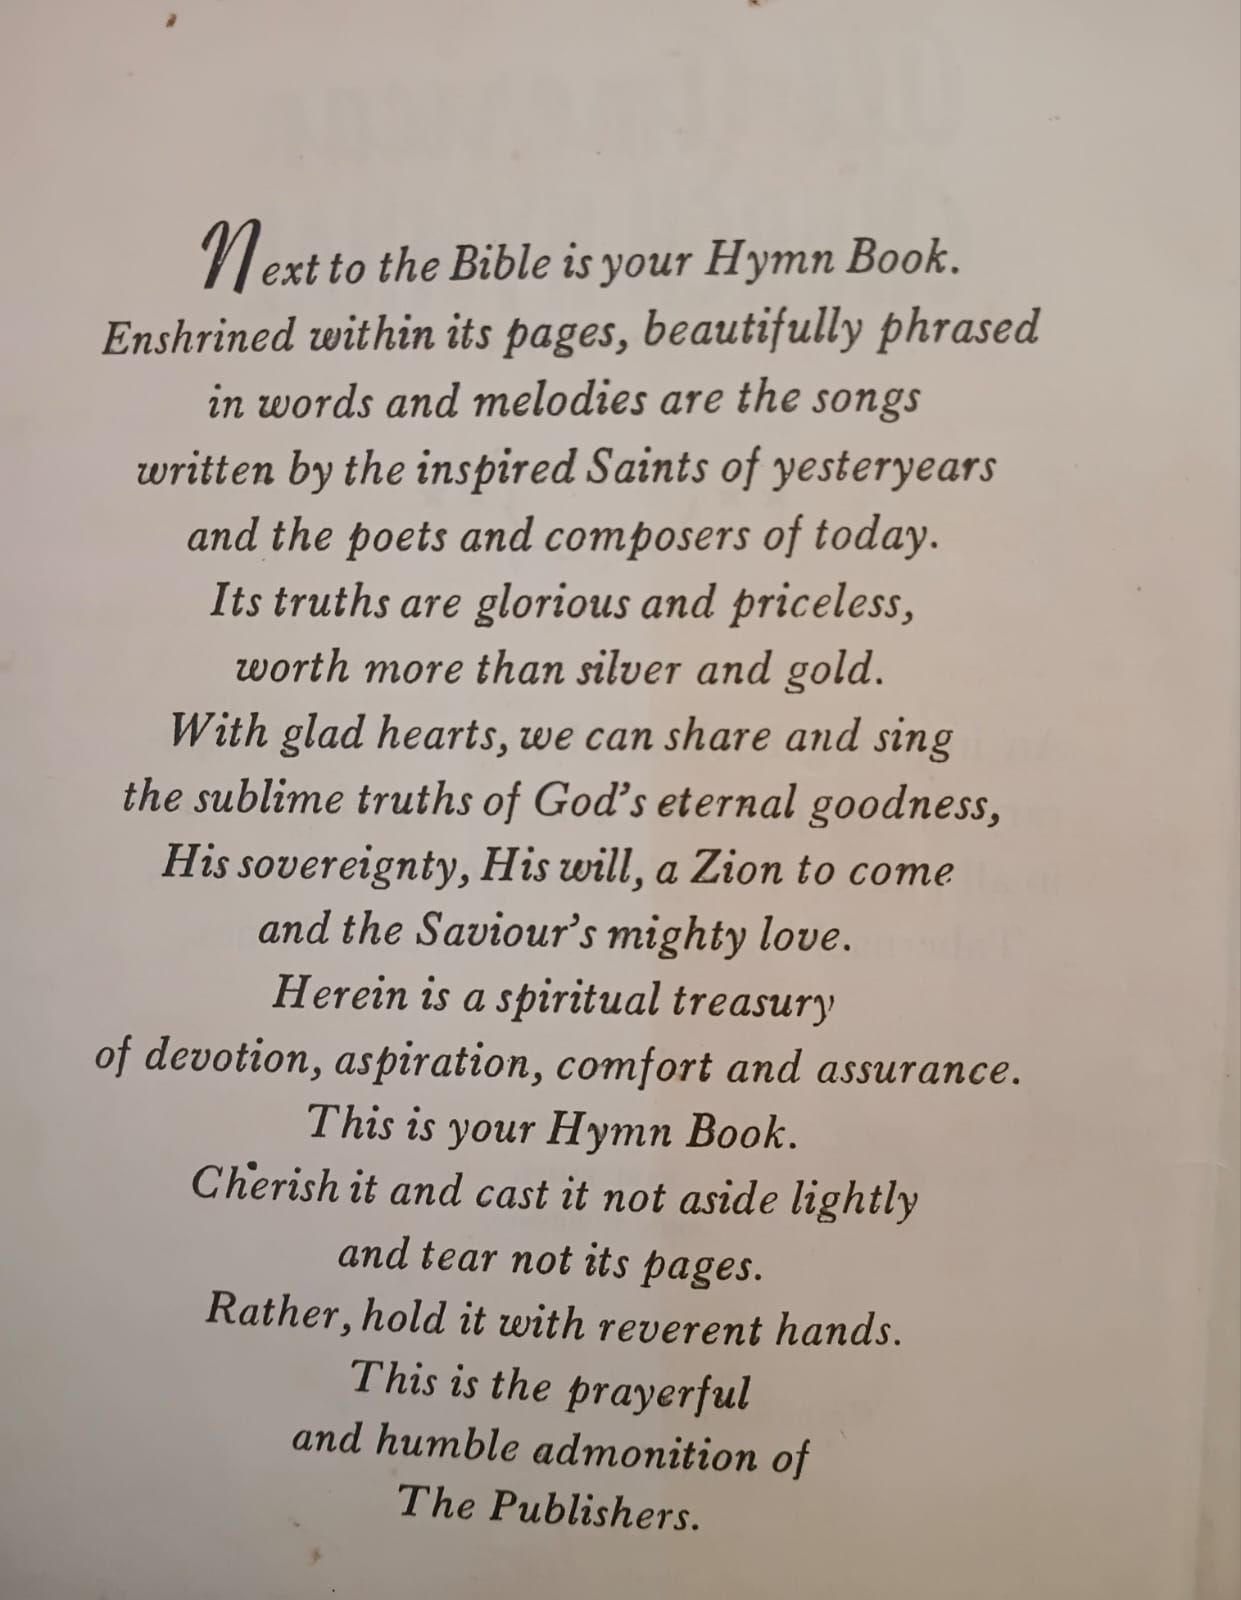 Next to the Bible is your Hymn Book.
Enshrined within its pages, beautifully phrased
in words and melodies are the songs
written by the inspired Saints of yesteryears
and the poets and composers of today.
Its truths are glorious and priceless,
worth more than silver and gold.
With glad hearts, we can share and sing
the sublime truths of God's eternal goodness,
His sovereignty, His will, a Zion to come
and the Saviour's mighty love.
Herein is a spiritual treasury
of devotion, aspiration, comfort and assurance.
This is your Hymn Book.
Cherish it and cast it not aside lightly
and tear not its pages.
Rather, hold it with reverent hands.
This is the prayerful
and humble admonition of
The Publishers.